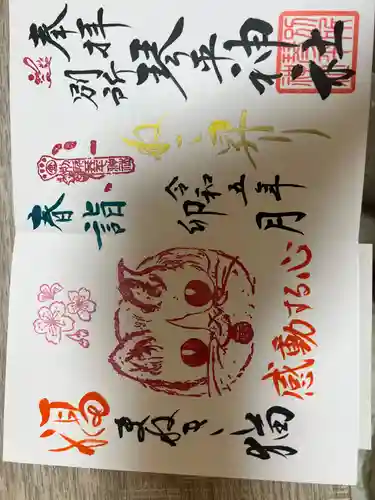 奉拝
別所琴平神社
令和五年
卯月
春詣
感動する心
福
まねき猫